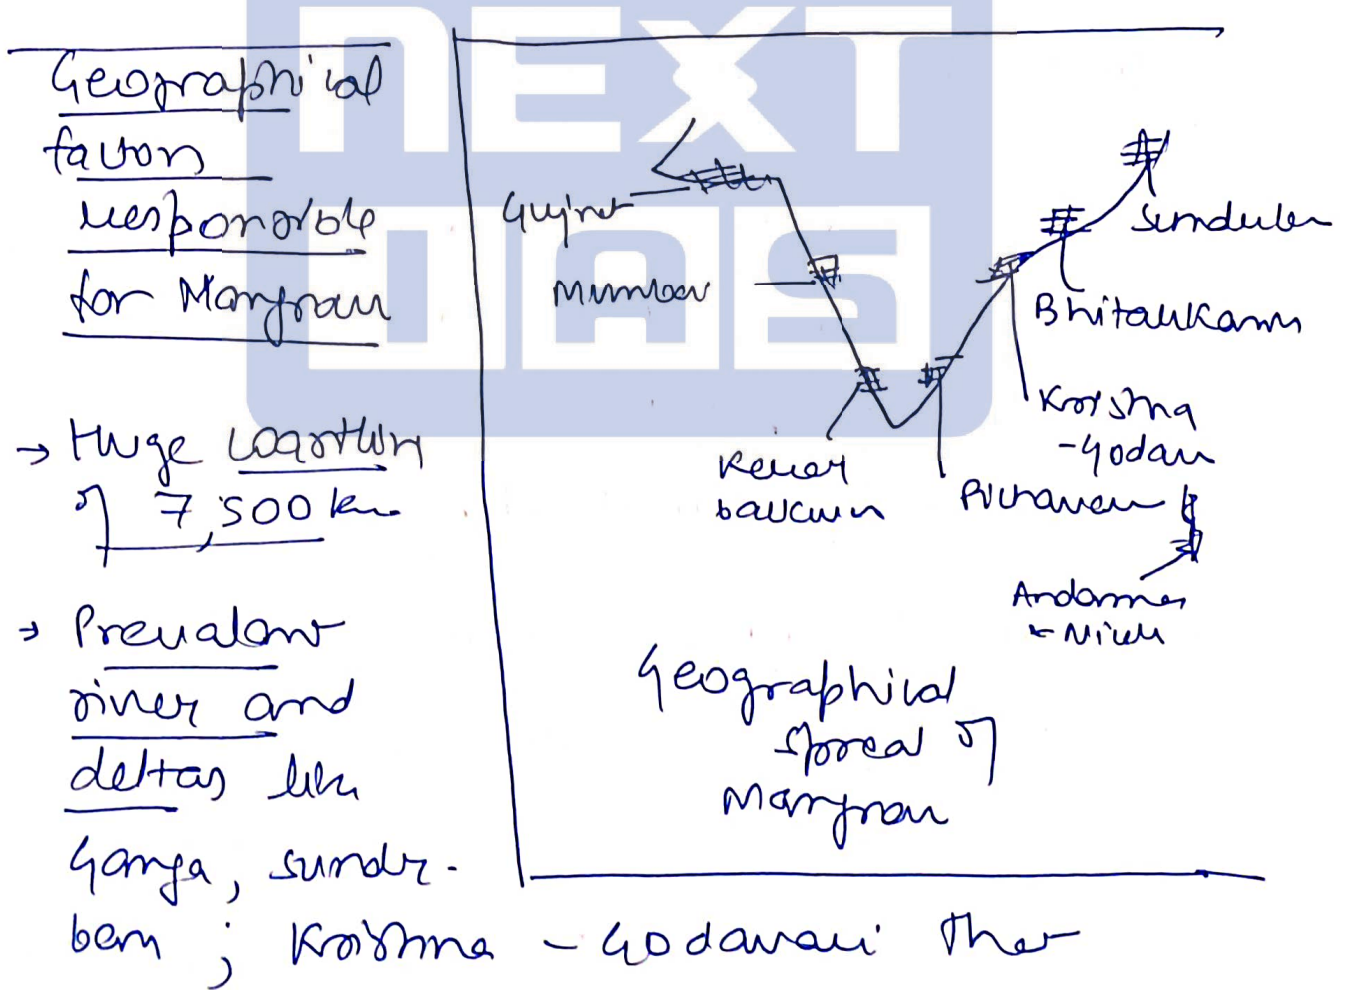 NEXT
IAS
Geographical
factors
responsible
for Mangrove
→ Huge coastline
of 7,500 km
→ Prevalent
river and
deltas like
Ganga, sundr-
ban ; Krishna - Godavari that
Gujrat
Mumbai
Kerala
backwater
Pichavaram
Krishna
-Godavari
Bhitarkanika
Sundarban
Andaman
& Nicobar
Geographical
spread of
Mangrove